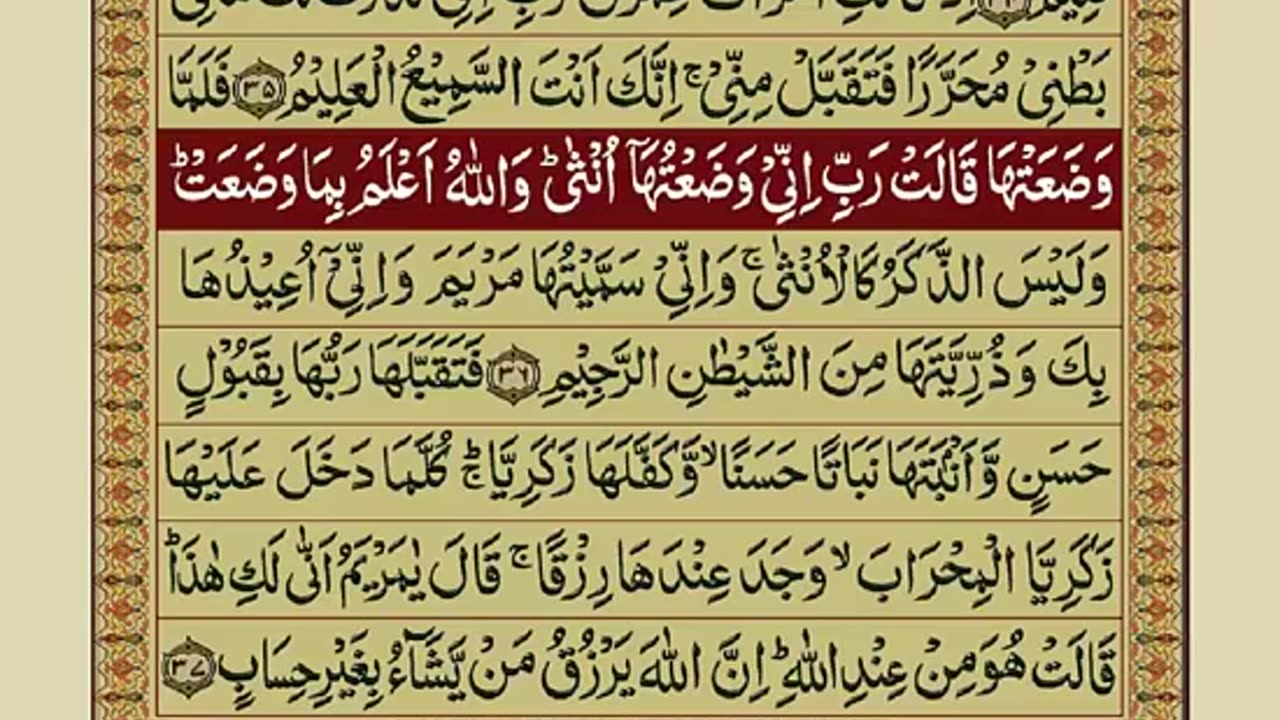 بَطْنِيْ مُحَرَّرًا فَتَقَبَّلْ مِنِّيْ ۚ اِنَّكَ اَنْتَ السَّمِيْعُ الْعَلِيْمُ ﴿۳۵﴾ فَلَمَّا
وَضَعَتْهَا قَالَتْ رَبِّ اِنِّيْ وَضَعْتُهَاۤ اُنْثٰى ؕ وَاللّٰهُ اَعْلَمُ بِمَا وَضَعَتْ ؕ
وَلَيْسَ الذَّكَرُ كَالْاُنْثٰى ۚ وَاِنِّيْ سَمَّيْتُهَا مَرْيَمَ وَاِنِّيْۤ اُعِيْذُهَا
بِكَ وَذُرِّيَّتَهَا مِنَ الشَّيْطٰنِ الرَّجِيْمِ ﴿۳۶﴾ فَتَقَبَّلَهَا رَبُّهَا بِقَبُوْلٍ
حَسَنٍ وَّاَنْۢبَتَهَا نَبَاتًا حَسَنًا ۙ وَّكَفَّلَهَا زَكَرِيَّا ؕۚ كُلَّمَا دَخَلَ عَلَيْهَا
زَكَرِيَّا الْمِحْرَابَ ۙ وَجَدَ عِنْدَهَا رِزْقًا ۚ قَالَ يٰمَرْيَمُ اَنّٰى لَكِ هٰذَا ؕ
قَالَتْ هُوَ مِنْ عِنْدِ اللّٰهِ ؕ اِنَّ اللّٰهَ يَرْزُقُ مَنْ يَّشَآءُ بِغَيْرِ حِسَابٍ ﴿۳۷﴾